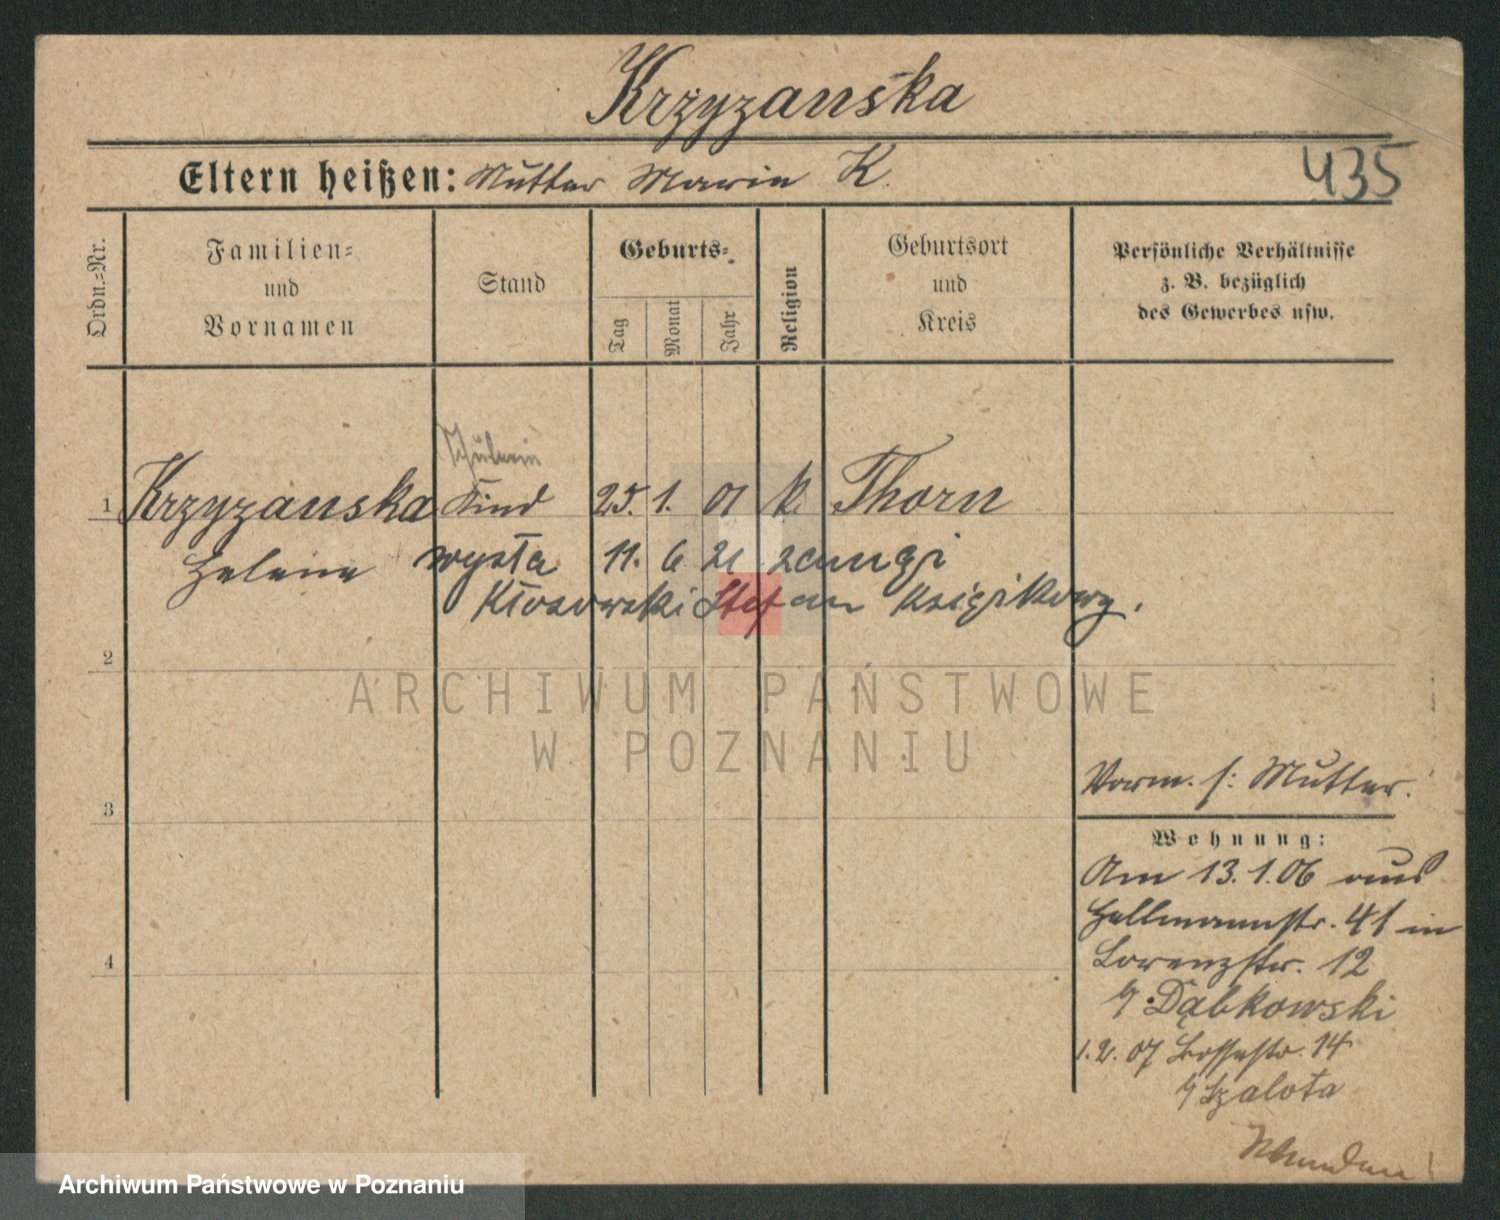 Krzyzanska
Eltern heißen: Mutter Marie K.
435
Ordn.-Nr.
Familien- und Vornamen
Stand
Geburts-
Tag
Monat
Jahr
Religion
Geburtsort und Kreis
Persönliche Verhältnisse
z. B. bezüglich
des Gewerbes usw.
Schülerin
1 Krzyzanska Kind 25. 1. 01 k. Thorn
Helene wyszła 11. 6 21 zamąż
Kłosowski Stefan
2
ARCHIWUM PAŃSTWOWE
W POZNANIU
Vorm. s: Mutter.
3
Wohnung:
Am 13.1.06 aus
Hellmannstr. 41 in
Lorenzstr. 12
Dąbkowski
4
1.2.07 14
Szalota
Archiwum Państwowe w Poznaniu